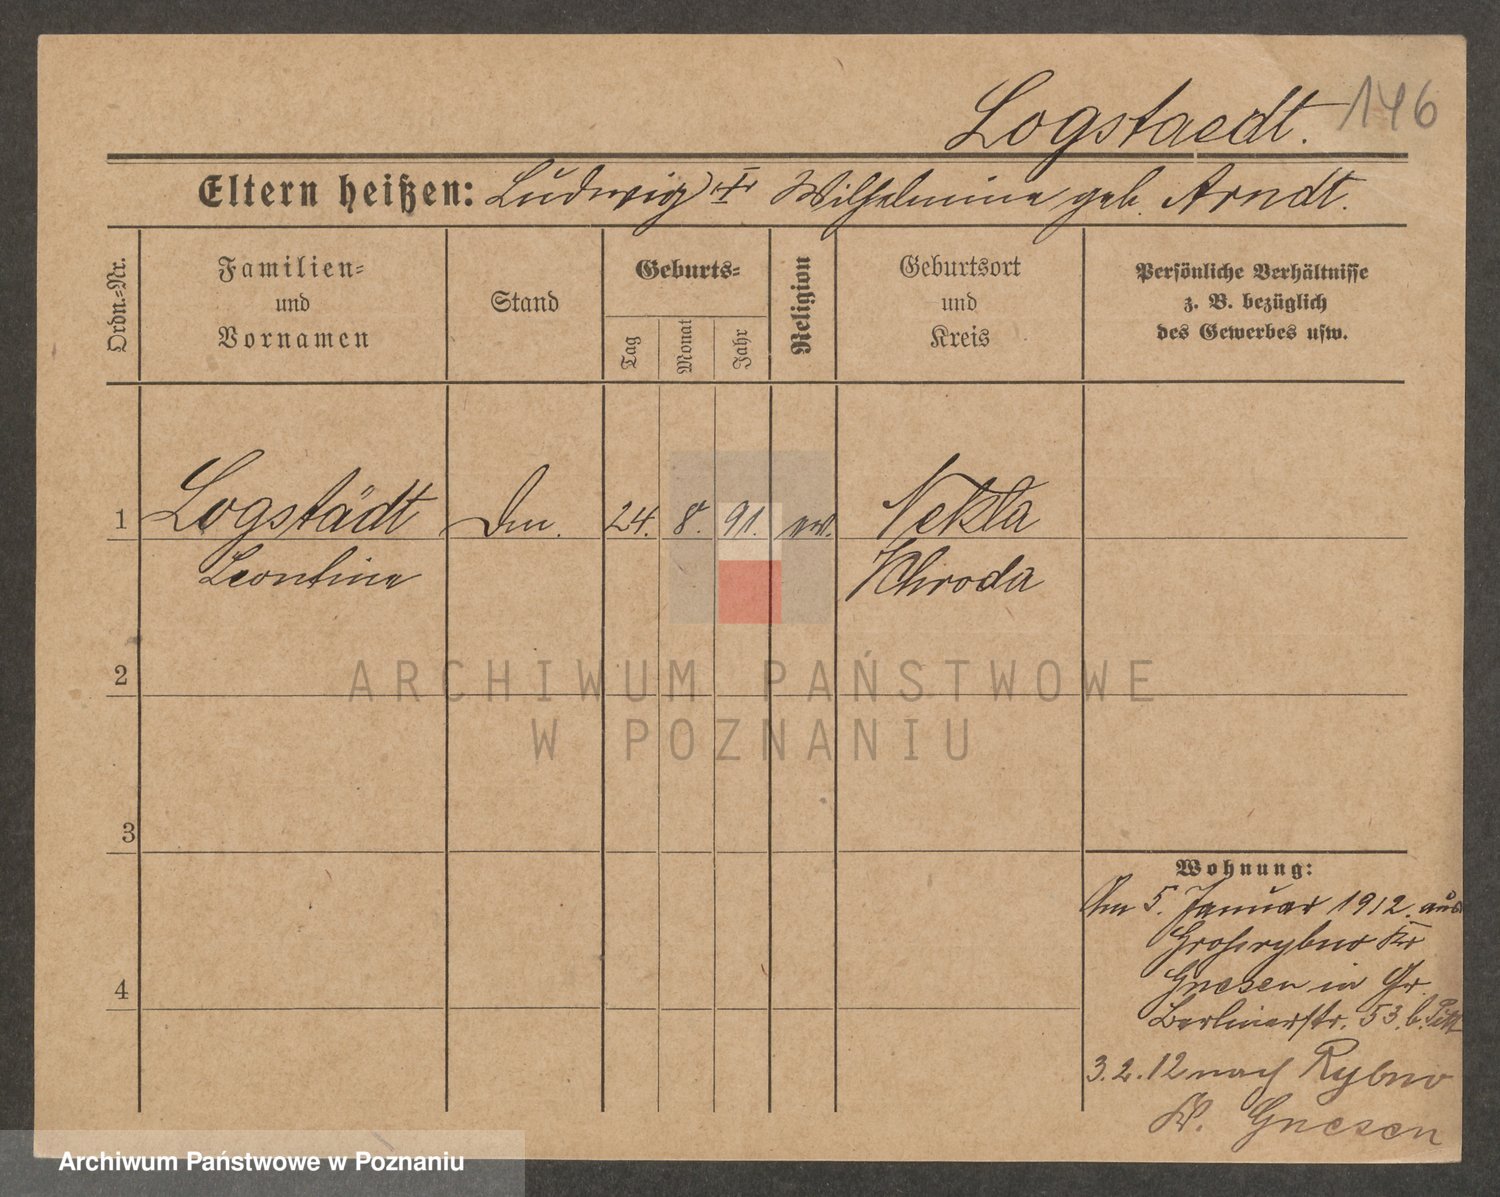 Logstaedt. 146
Eltern heißen: Ludwig Wilhelmine geb. Arndt.
Ordn.-Nr.
Familien-
und
Vornamen
Stand
Geburts-
Tag
Monat
Jahr
Religion
Geburtsort
und
Kreis
Persönliche Verhältnisse
z. B. bezüglich
des Gewerbes usw.
1 Logstädt 24. 8. 91. ev. Nekla
Leontine Schroda
2
ARCHIWUM PAŃSTWOWE
W POZNANIU
3
4
Wohnung:
Am 5. Januar 1912. aus
Großrybno Kr
Gnesen in Gr.
Berlinerstr. 53. b.
3.2.12 nach Rybno
Kr. Gnesen
Archiwum Państwowe w Poznaniu